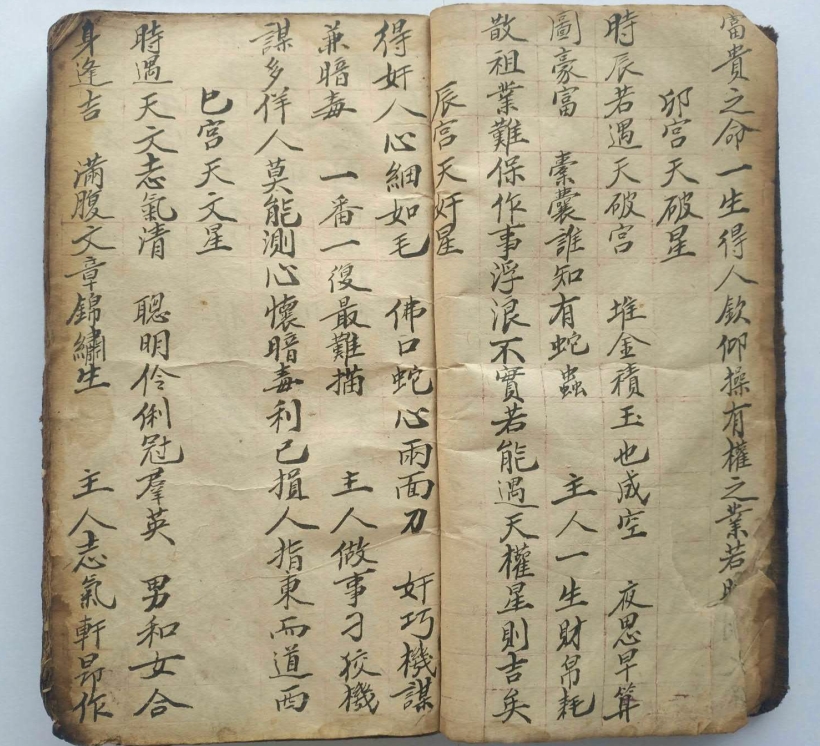 富貴之命一生得人欽仰操有權之業若
卯宮天破星
時辰若遇天破宮 堆金積玉也成空 夜思早算
圖豪富 橐囊誰知有蛇蟲 主人一生財帛耗
散祖業難保作事浮浪不實若能遇天權星則吉矣
辰宮天奸星
得奸人心細如毛 佛口蛇心兩面刀 奸巧機謀
兼暗毒 一番一復最難描 主人做事刁狡機
謀多佯人莫能測心懷暗毒利己損人指東而道西
巳宮天文星
時遇天文志氣清 聰明伶俐冠羣英 男和女合
身逢吉 滿腹文章錦繡生 主人志氣軒昂作